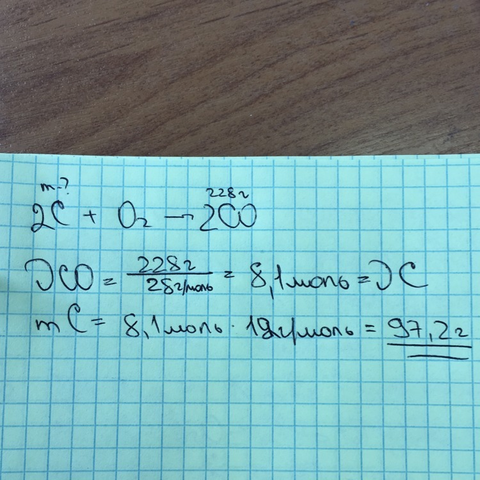 m-? 228г
2C + O₂ → 2CO
νCO = 228г / 28г/моль = 8,1моль = νC
mC = 8,1моль · 12г/моль = 97,2г